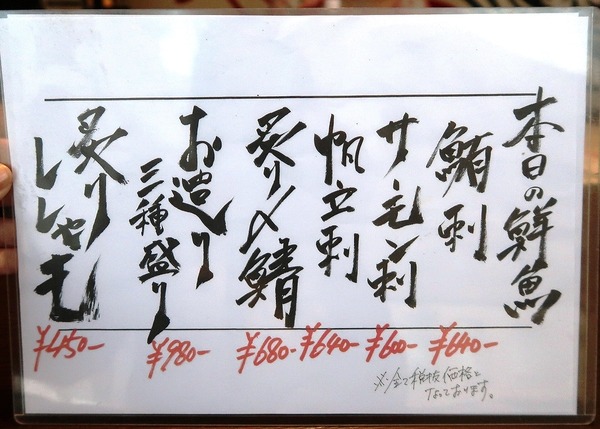 本日の鮮魚
鮪刺
¥640-
サーモン刺
¥600-
帆立刺
¥640-
炙り〆鯖
¥680-
お造り
三種盛り
¥980-
炙り
ししゃも
¥450-
※全て税抜価格と
なっております。